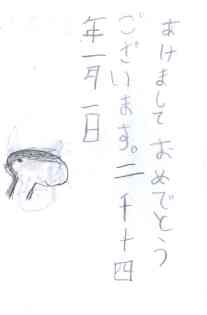 あけまして おめでとう
ございます。二千十四
年一月一日